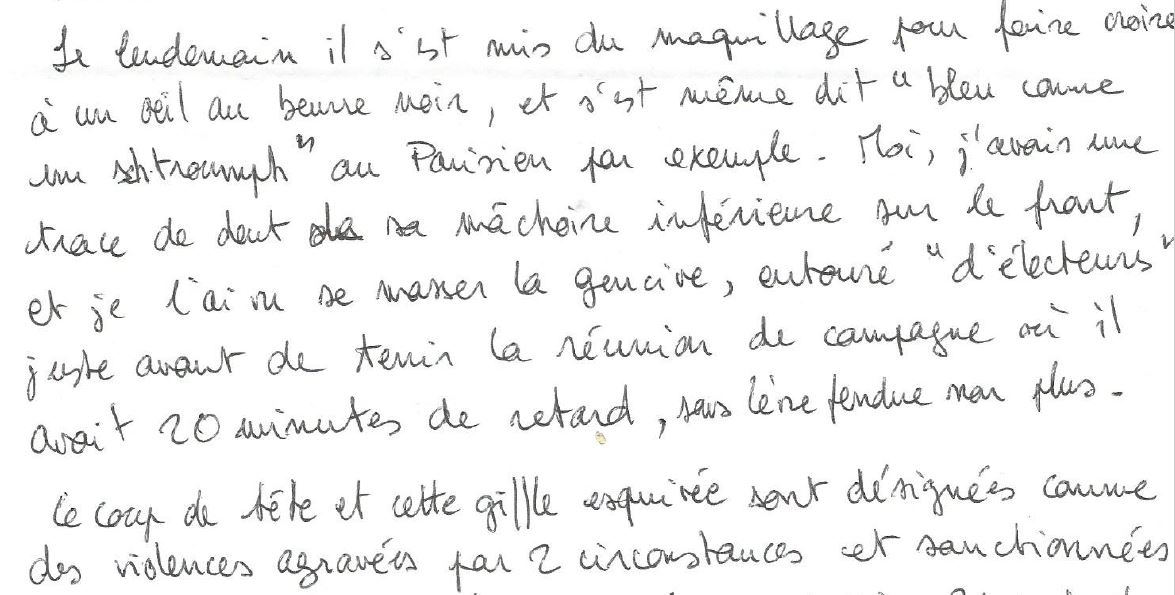 Le lendemain il s'est mis du maquillage pour faire croire
à un œil au beurre noir, et s'est même dit "bleu comme
un schtroumph" au Parisien par exemple. Moi, j'avais une
trace de dent de sa mâchoire inférieure sur le front,
et je l'ai vu se masser la gencive, entouré "d'électeurs"
juste avant de tenir la réunion de campagne où il
avait 20 minutes de retard, sans lèvre fendue non plus.
Ce coup de tête et cette gifle esquivée sont désignées comme
des violences agravées par 2 circonstances et sanctionnées